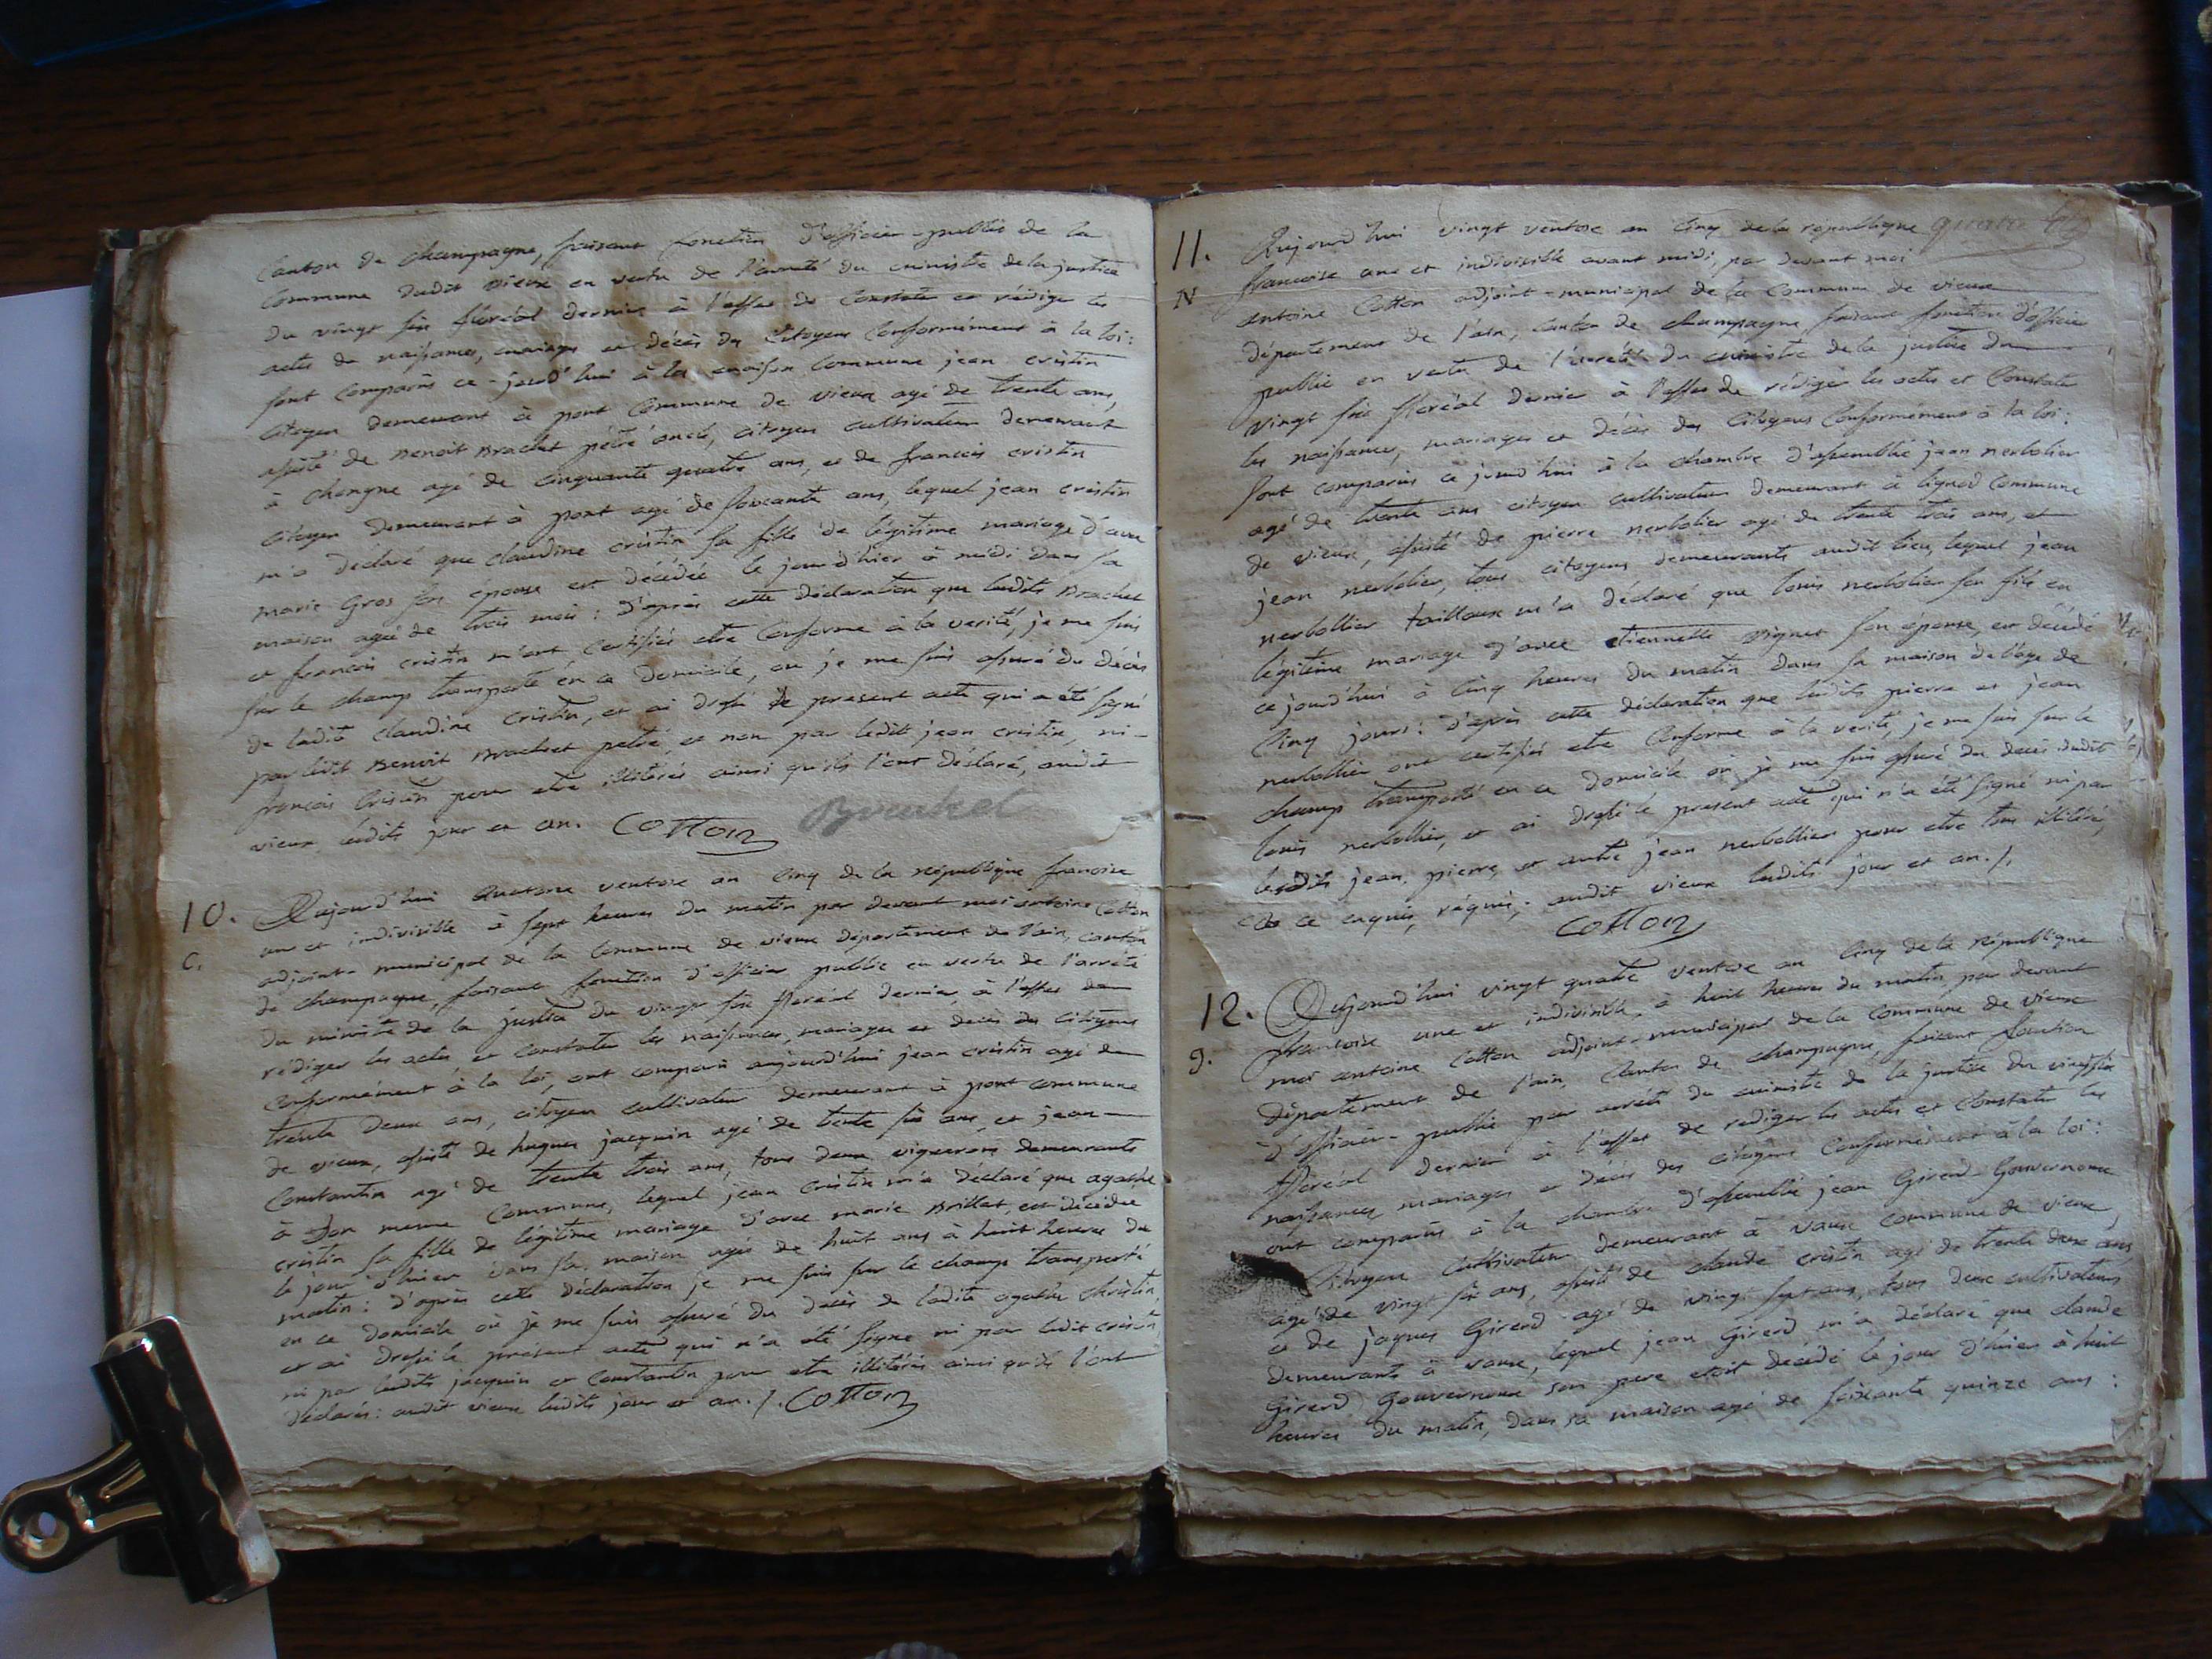 Canton de champagne, faisant fonction d'officier-public de la
Commune dudit vieux en vertu de l'arreté du ministre de la justice
du vingt six floréal dernier à l'effet de Constater et rédiger les
actes de naissances, mariages et décès des Citoyens Conformément à la loi:
sont Comparûs ce-jourd'hui à la maison Commune jean cristin
Citoyen demeurant à pont Commune de vieux agé de trente ans,
assisté de Benoit Brachet citoyen cultivateur demeurant
à chongne agé de Cinquante quatre ans, et de francois cristin
Citoyen demeurant à pont agé de soixante ans, lequel jean cristin
m'a déclaré que claudine cristin sa fille de légitime mariage d'avec
marie Gros son épouse est décédée le jour d'hier à midi dans sa
maison agée de trois mois: d'après cette déclaration que lesdits Brachet
et francois cristin m'ont certifiés etre Conforme à la verité, je me suis
sur le champ transporté en ce domicile, ou je me suis assuré du décès
de ladite claudine cristin, et ai dressé le present acte qui a été signé
par ledit Benoit Brachet et non par ledit jean cristin, ni-
francois Cristin pour etre illitérés ainsi qu'ils l'ont déclaré, audit
vieux lesdits jour et an. Cotton Brachet
10. Aujourd'hui Quatorze ventose an Cinq de la république francoise
une et indivisible à sept heures du matin par devant moi antoine Cotton
C. adjoint-municipal de la Commune de vieux département de l'ain, canton
de champagne, faisant fonction d'officier public en vertu de l'arreté
du ministre de la justice du vingt six floréal dernier, à l'effet de
rédiger les actes et constater les naissances, mariages et decès des Citoyens
Conformément à la loi, ont comparû aujourd'hui jean cristin agé de
trente deux ans, citoyen cultivateur demeurant à pont commune
de vieux, assisté de hugues jacquin agé de trente six ans, et jean
Constantin agé de trente trois ans, tous deux vignerons demeurants
à Don meme Commune, lequel jean cristin m'a déclaré que agathe
cristin sa fille de légitime mariage d'avec marie Brillat, est décédée
le jour d'hier dans sa maison agée de huit ans à huit heures du
matin: d'après cette déclaration je me suis sur le champ transporté
en ce domicile où je me suis assuré du decès de ladite agathe christin,
et ai dressé le présent acte qui n'a été signé ni par ledit cristin,
ni par lesdits jacquin et Constantin pour etre illitérés ainsi qu'ils l'ont
déclarés: audit vieux lesdits jour et an./. Cotton
11. Aujourd'hui vingt ventose an Cinq de la république
francoise une et indivisible avant midi, par devant moi
N antoine Cotton adjoint-municipal de la Commune de vieux
département de l'ain, Canton de champagne, faisant fonction d'officier
public en vertu de l'arreté du ministre de la justice du
vingt six floréal dernier à l'effet de rédiger les actes et Constater
les naissances, mariages et décès des Citoyens Conformément à la loi:
sont comparûs ce jourd'hui à la chambre d'assemblée jean nerbolier
agé de trente ans citoyen cultivateur demeurant à lignod Commune
de vieux, assisté de pierre nerbolier agé de trente trois ans, et
jean nerbolier, tous citoyens demeurants audit lieu, lequel jean
nerbollier tailleur m'a déclaré que louis nerbolier son fils en
légitime mariage d'avec etiennette vignet son épouse, est décédé
ce jourd'hui à Cinq heures du matin dans sa maison de l'age de
Cinq jours: d'après cette déclaration que lesdits pierre et jean
nerbollier ont certifiés etre Conforme à la verité, je me suis sur le
champ transporté en ce domicile où je me suis assuré du decès dudit
louis nerbollier, et ai dressé le present acte qui n'a été signé ni par
lesdits jean, pierre, et autre jean nerbollier pour etre tous illitérés,
de ce enquis, réquis,: audit vieux lesdits jour et an./.
Cotton
12. Aujourd'hui vingt quatre ventose an Cinq de la république
francoise une et indivisible, à huit heures du matin par devant
g. moi antoine Cotton adjoint-municipal de la Commune de vieux
département de l'ain, Canton de champagne, faisant fonction
d'officier-public par arreté du ministre de la justice du vingt six
floréal dernier à l'effet de rediger les actes et Constater les
naissances mariages et décès des citoyens Conformément à la loi:
ont comparûs à la chambre d'assemblée jean Girerd Gouverneur
Citoyen Cultivateur demeurant à vaux Commune de vieux,
agé de vingt six ans, assisté de claude cristin agé de trente deux ans,
et de jaques Girerd agé de vingt sept ans, tous deux cultivateurs
demeurants à vaux, lequel jean Girerd m'a déclaré que claude
Girerd Gouverneur son pere etoit décédé le jour d'hier à huit
heures du matin, dans sa maison agé de soixante quinze ans: